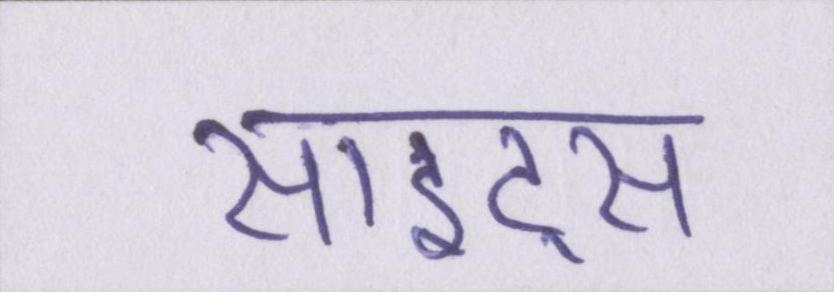 साइट्स